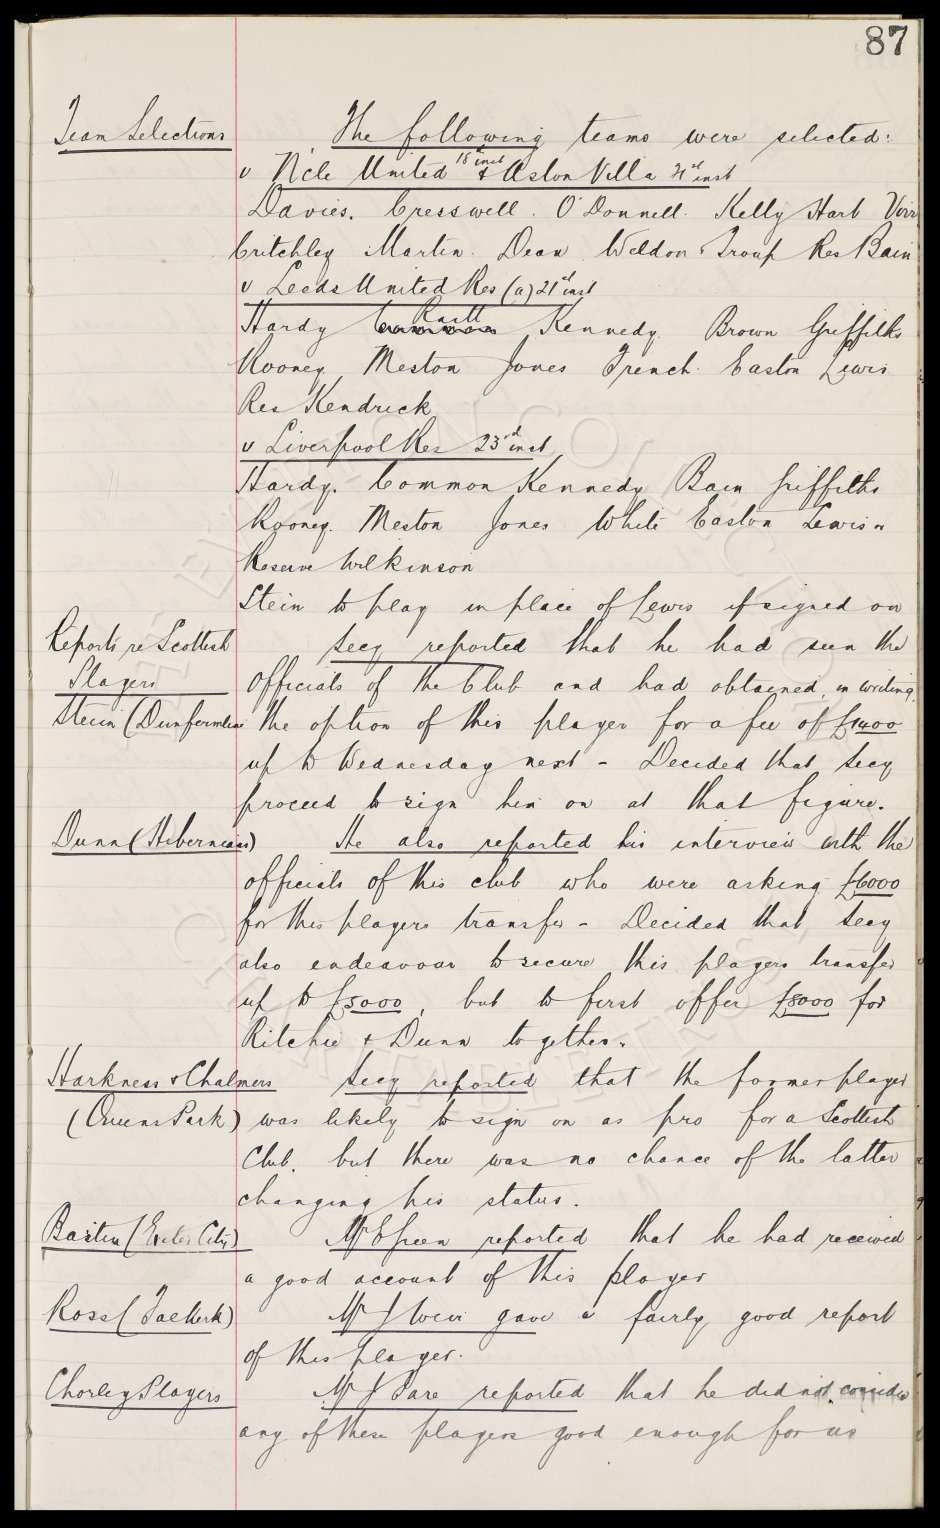 87
Team Selections The following teams were selected:
v N'cle United 18th inst & Aston Villa 21st inst
Davies. Cresswell. O'Donnell. Kelly Hart Virr
Critchley Martin. Dean Weldon & Troup Res Bain
v Leeds United Res (a) 21st inst
Hardy Common Raitt Kennedy. Brown Griffiths
Rooney Meston Jones French. Easton Lewis
Res Kendrick
v Liverpool Res 23rd inst
Hardy. Common Kennedy Bain Griffiths
Rooney. Meston Jones White Easton Lewis
Reserve Wilkinson
Stein to play in place of Lewis if signed on
Reports re Scottish Secy reported that he had seen the
Players officials of the Club and had obtained, in writing,
Stein (Dunfermline the option of this player for a fee of £1400
up to Wednesday next - Decided that Secy
proceed to sign him on at that figure.
Dunn (Hibernians) He also reported his interview with the
officials of this club who were asking £6000
for this players transfer - Decided that Secy
also endeavour to secure this players transfer
up to £5000, but to first offer £8000 for
Ritchie & Dunn together.
Harkness & Chalmers Secy reported that the former player
(Queens Park) was likely to sign on as pro for a Scottish
Club, but there was no chance of the latter
changing his status.
Bastin (Exeter City) Mr E Green reported that he had received
a good account of this player
Ross (Falkirk) Mr J Weir gave a fairly good report
of this player.
Chorley Players Mr J Sare reported that he did not consider
any of these players good enough for us